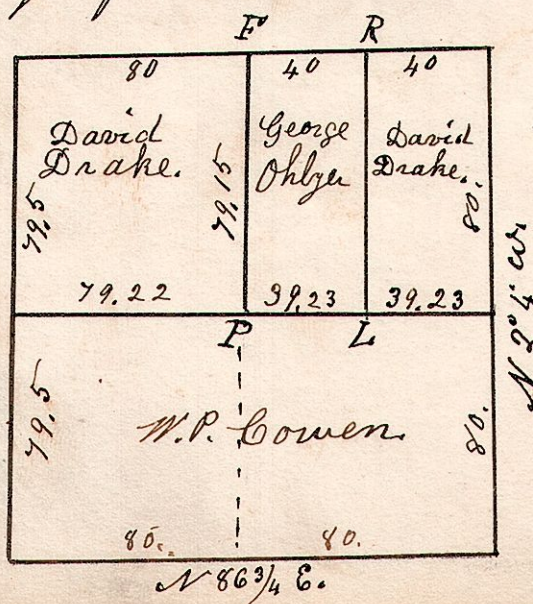 F R
80 40 40
David
Drake.
George
David
Drake.
79.5
79.15
80.
79.22 39.23 39.23
P L
79.5
W.P. Cowen.
80.
80. 80.
N 86 3/4 E.